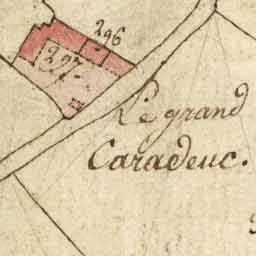 296
297
Le grand
Caradeuc.